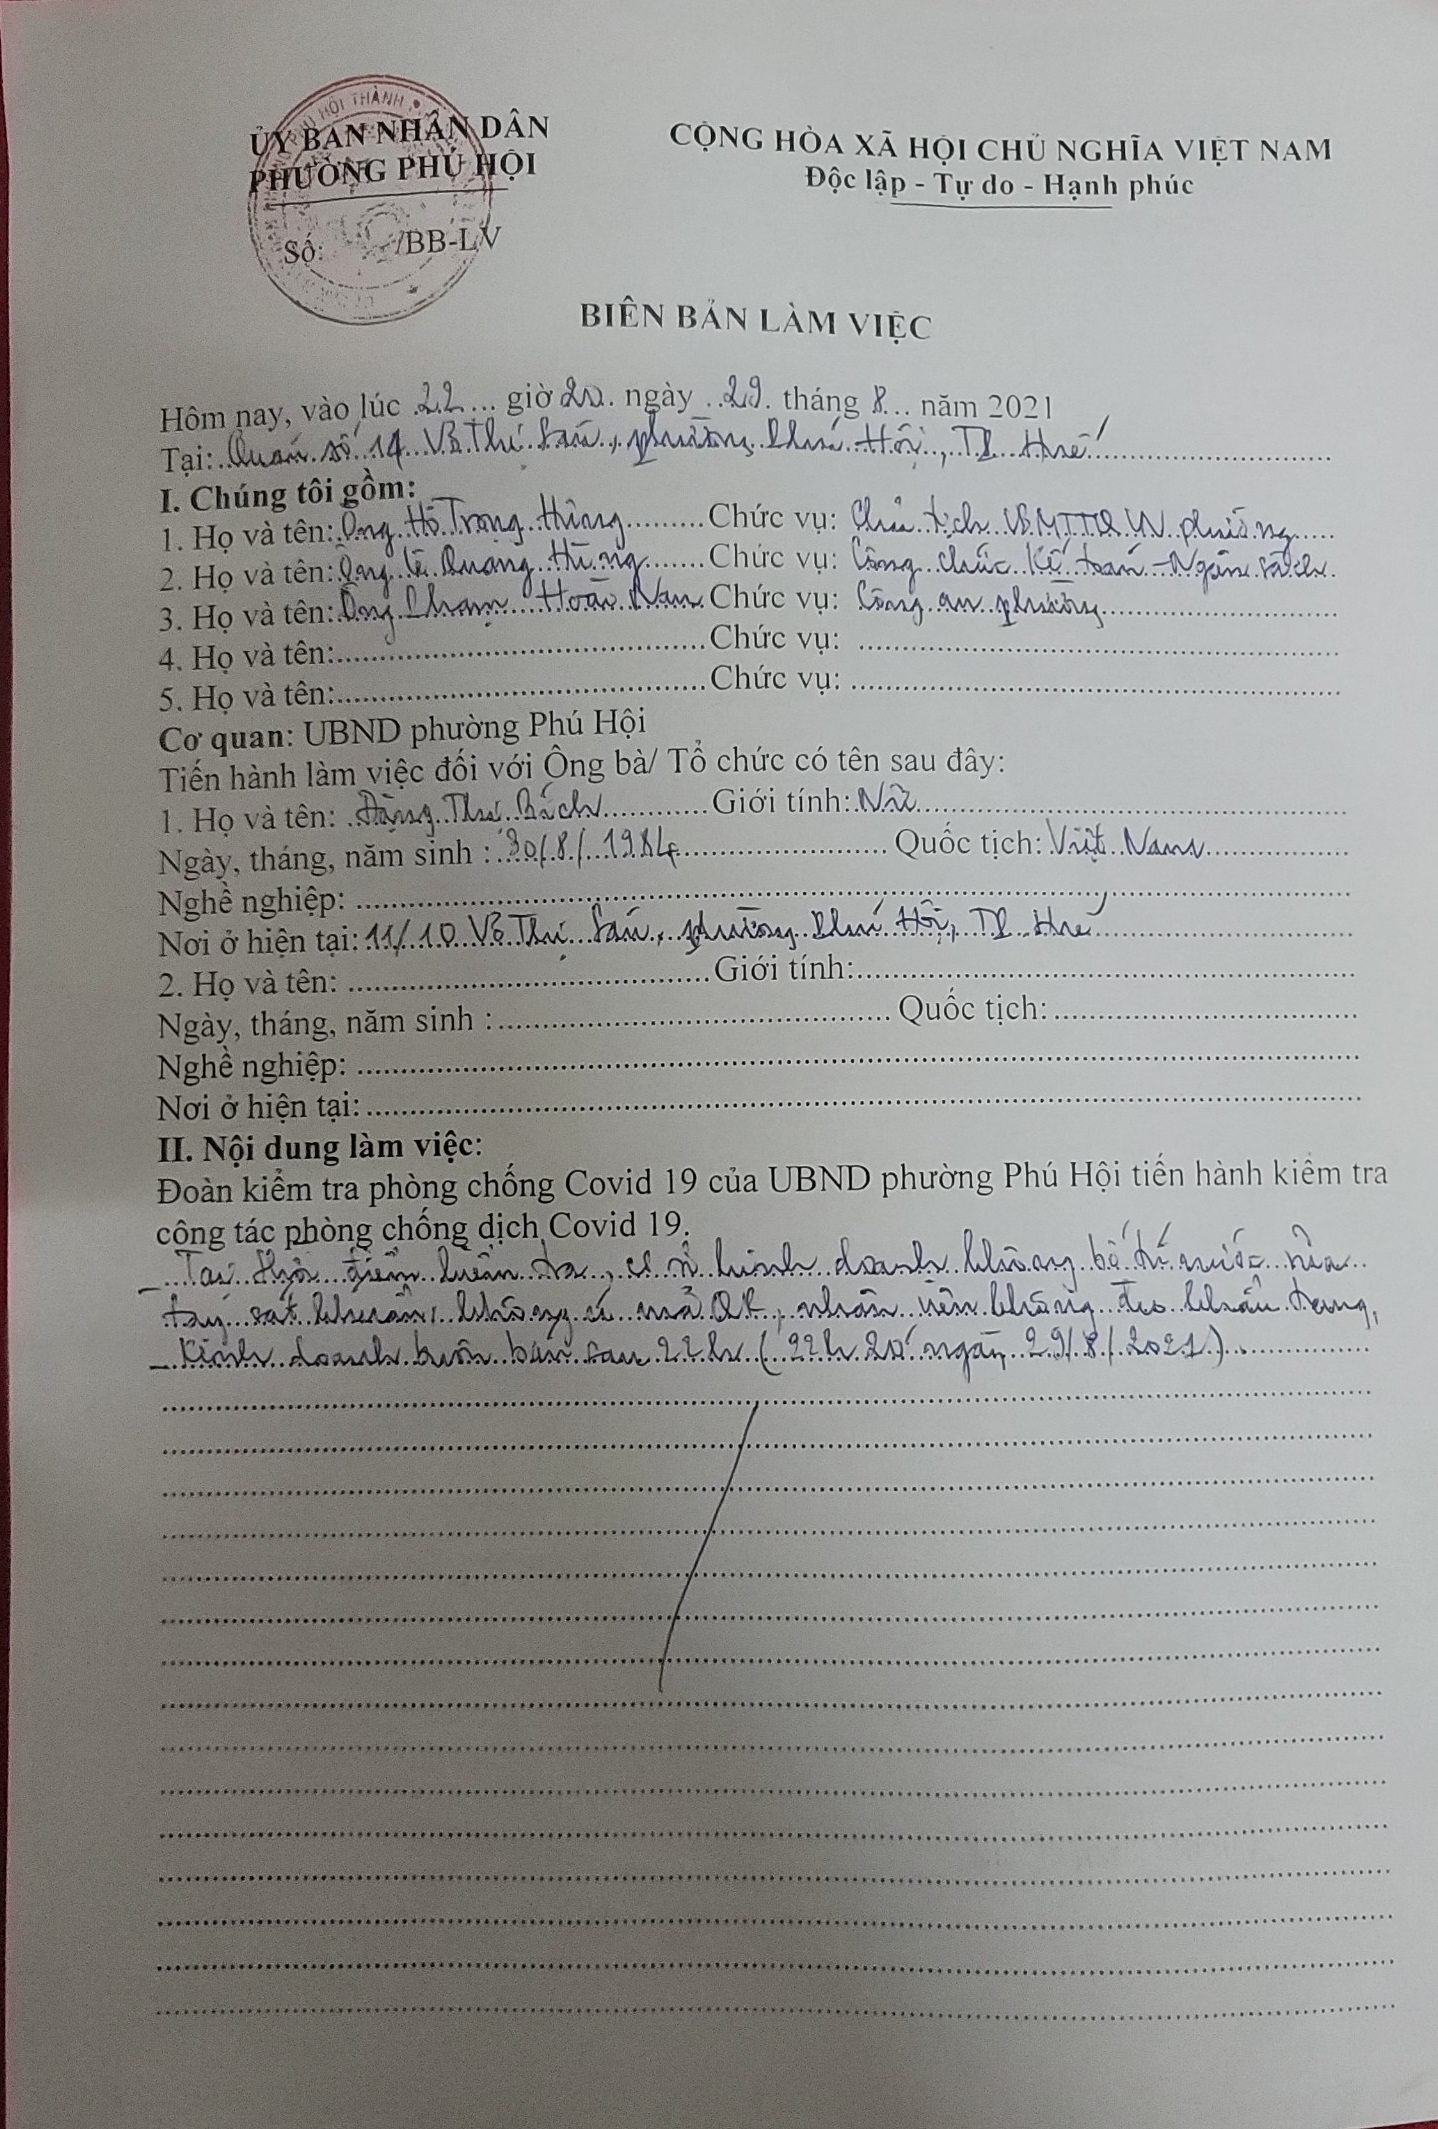 ỦY BAN NHÂN DÂN
PHƯỜNG PHÚ HỘI
Số: /BB-LV
CỘNG HÒA XÃ HỘI CHỦ NGHĨA VIỆT NAM
Độc lập - Tự do - Hạnh phúc
BIÊN BẢN LÀM VIỆC
Hôm nay, vào lúc 22 giờ 20 ngày 29 tháng 8 năm 2021
Tại: Quán số 14 Võ Thị Sáu, phường Phú Hội, TP Huế
I. Chúng tôi gồm:
1. Họ và tên: Ông Hồ Trọng Hùng Chức vụ: Chủ tịch UBMTTQVN phường
2. Họ và tên: Ông Lê Quang Hùng Chức vụ: Công chức Kế toán - Ngân sách
3. Họ và tên: Ông Phạm Hoài Nam Chức vụ: Công an phường
4. Họ và tên: Chức vụ:
5. Họ và tên: Chức vụ:
Cơ quan: UBND phường Phú Hội
Tiến hành làm việc đối với Ông bà/ Tổ chức có tên sau đây:
1. Họ và tên: Đặng Thư Bách Giới tính: Nữ
Ngày, tháng, năm sinh : 30/8/1984 Quốc tịch: Việt Nam
Nghề nghiệp:
Nơi ở hiện tại: 11/10 Võ Thị Sáu, phường Phú Hội, TP Huế
2. Họ và tên: Giới tính:
Ngày, tháng, năm sinh : Quốc tịch:
Nghề nghiệp:
Nơi ở hiện tại:
II. Nội dung làm việc:
Đoàn kiểm tra phòng chống Covid 19 của UBND phường Phú Hội tiến hành kiểm tra
công tác phòng chống dịch Covid 19.
- Tại thời điểm kiểm tra, cơ sở kinh doanh không bố trí nước rửa
tay sát khuẩn, không có mã QR, nhân viên không đeo khẩu trang,
- Kinh doanh buôn bán sau 22h (22h20' ngày 29/8/2021).